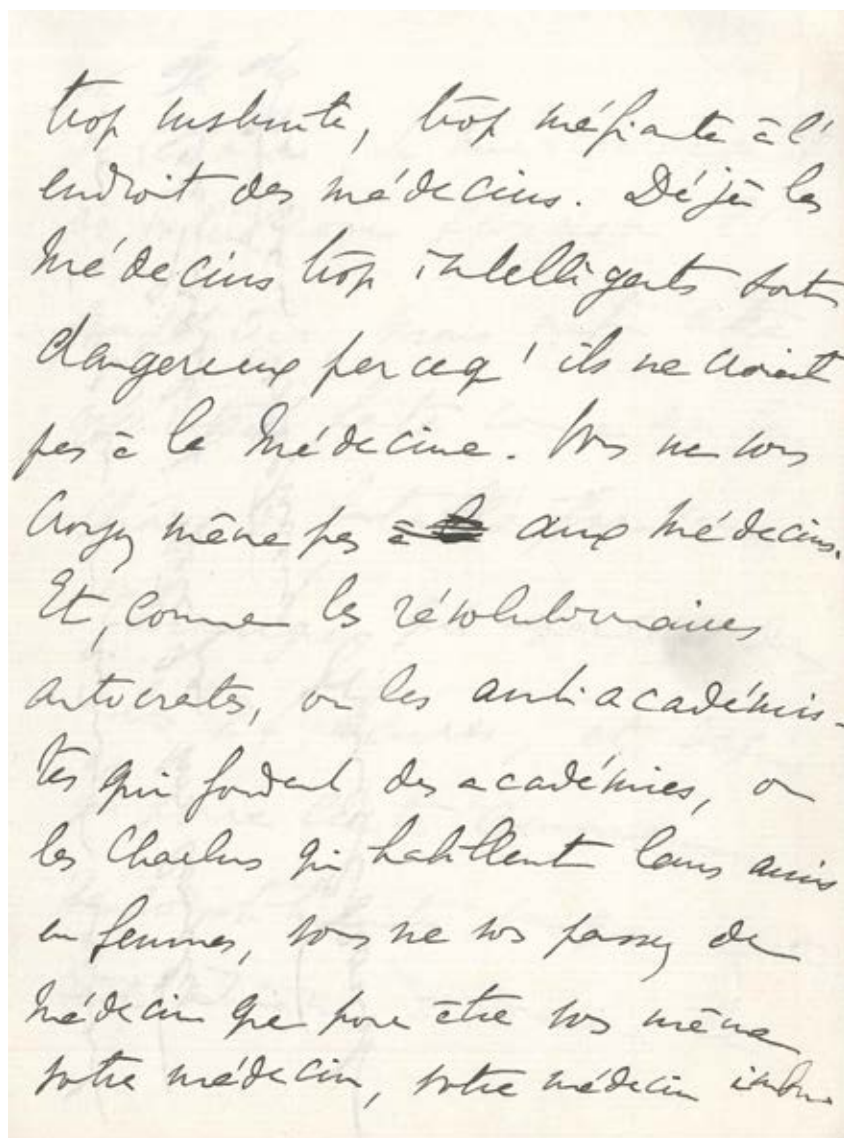 trop instruite, trop méfiante à l'
endroit des médecins. Déjà les
médecins trop intelligents sont
dangereux parceq' ils ne croient
pas à la Médecine. Vous ne vous
croyez même pas à la aux médecins.
Et, comme les révolutionnaires
autocrates, ou les antiacadémis-
tes qui fondent des académies, ou
les Charlus qui habillent leurs amis
en femmes, vous ne vous passez de
médecin que pour être vous même
votre médecin, votre médecin